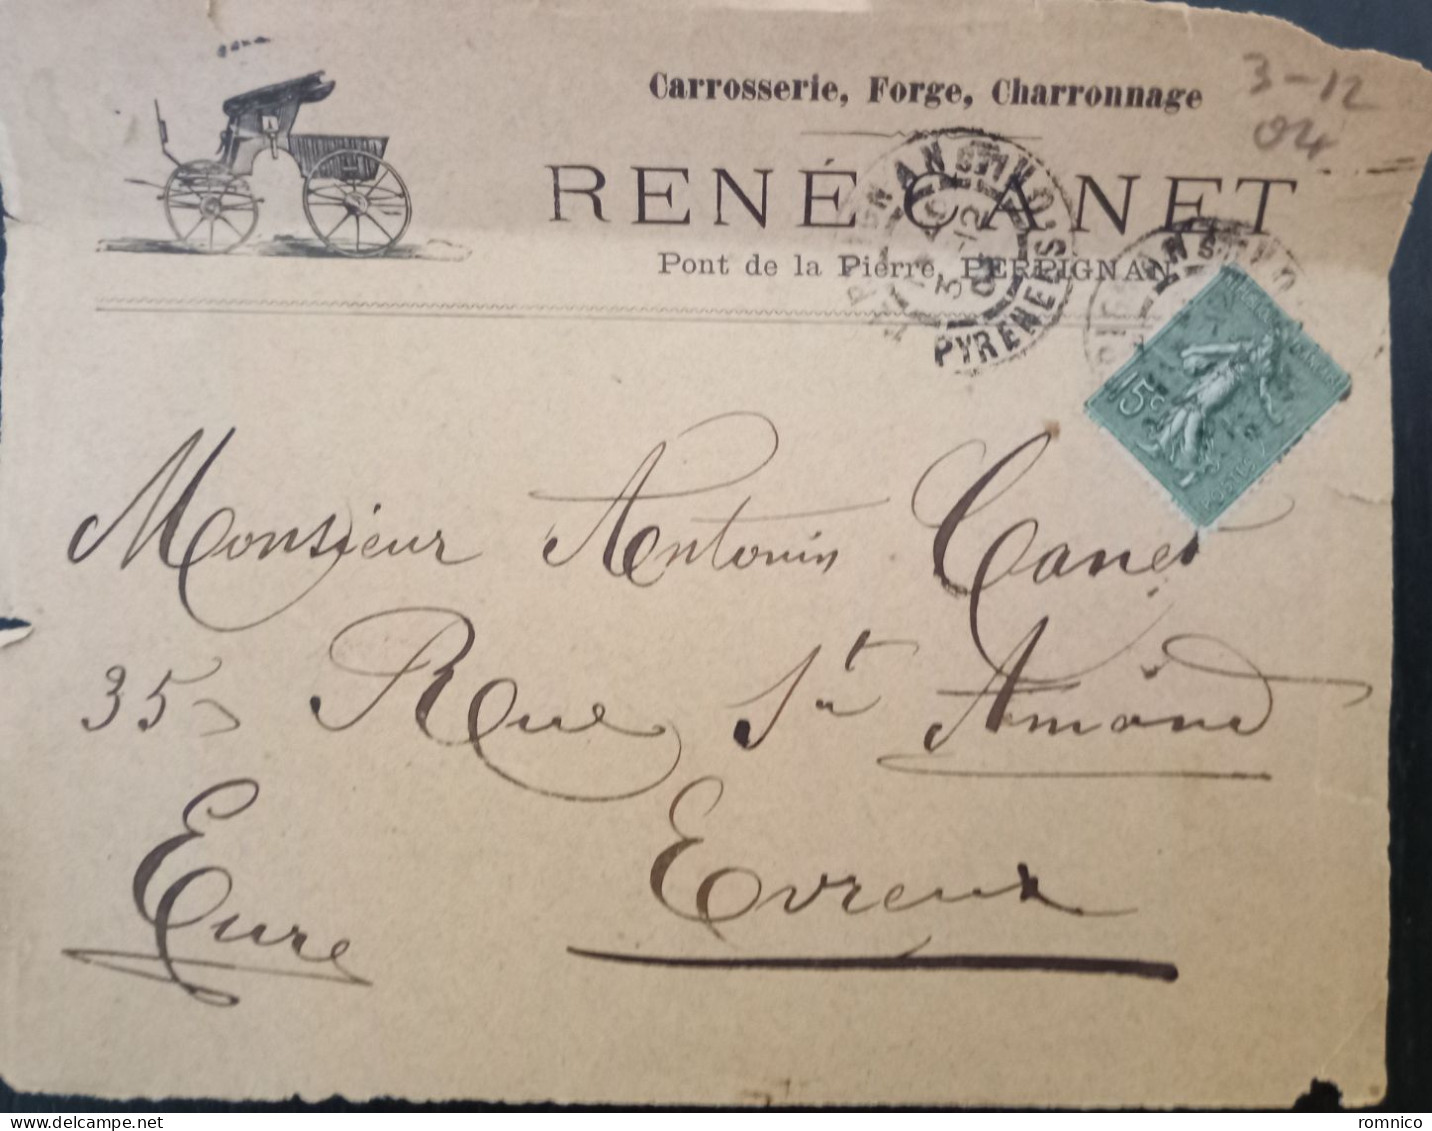 Carrosserie, Forge, Charronnage
3-12
04
RENÉ CANET
Pont de la Pierre, PERPIGNAN
PERPIGNAN
3 -12
04
PYRENEES
15c
Monsieur Antonin Canet
35, Rue St Amand
Evreux
Eure
romnico